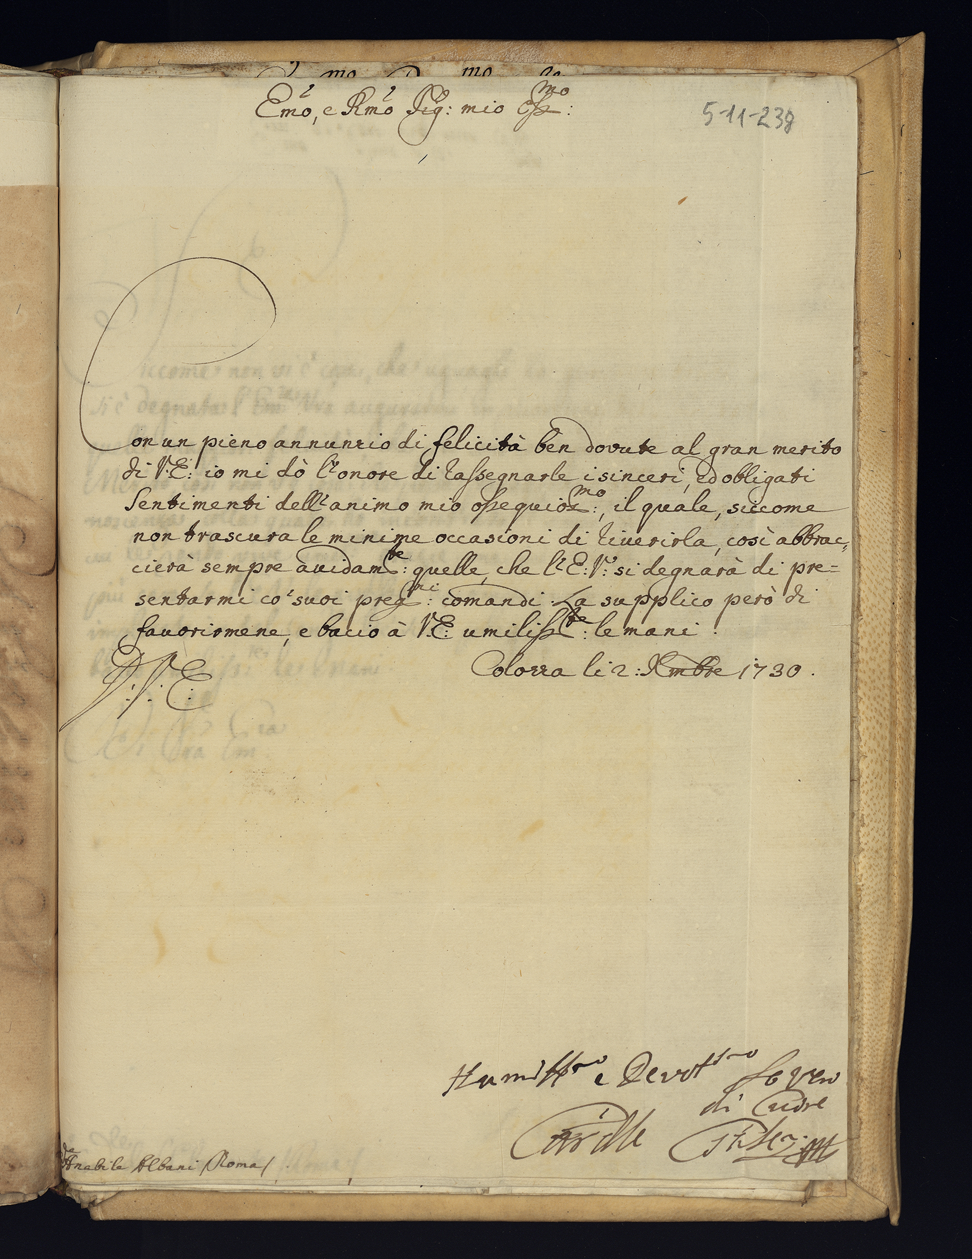 Em̃o, e Rm̃o Sig: mio Oss:mo
5-11-238
Con un pieno annunzio di felicità ben dovute al gran merito
di V.E: io mi dò l'onore di rassegnarle i sinceri, ed obligati
Sentimenti dell'animo mio ossequios:mo, il quale, siccome
non trascura le minime occasioni di riverirla, così abbrac=
cierà sempre avidam:te quelle, che l'E:V: si degnarà di pre=
sentarmi co' suoi preg:mi comandi. La supplico però di
favorirmene, e bacio à V.E: umiliss:te le mani.
D.V.E. Colozza li 2: Xmbre 1730.
Humill.mo e Devot.mo Ser
di Cuore
Albani (Roma)